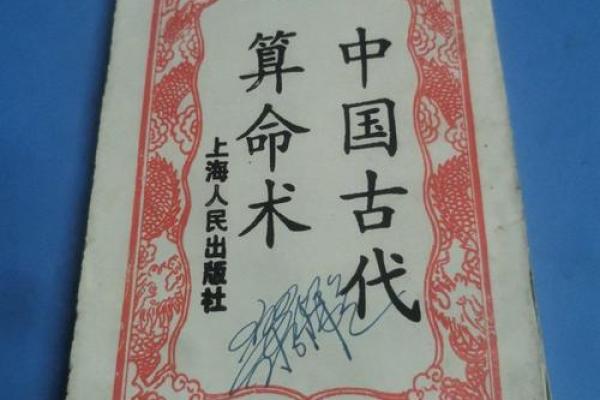 中国古代
算命术
上海人民出版社